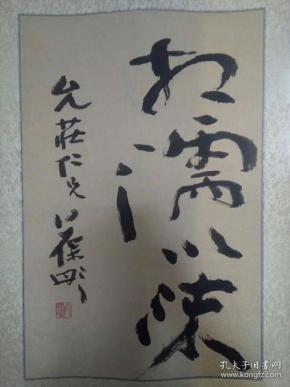 相濡以沫
允莊仁兄
孔夫子旧书网
www.kongfz.com